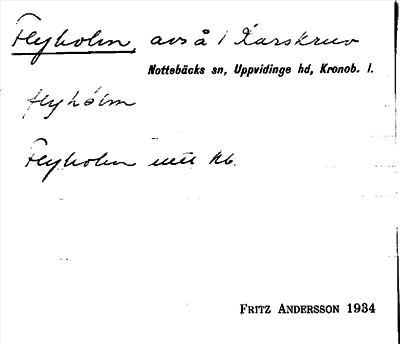 Flyholm, avs å i Karskruv
Nottebäcks sn, Uppvidinge hd, Kronob. l.
flyhòlm
Flyholm uttt Kb.
FRITZ ANDERSSON 1934